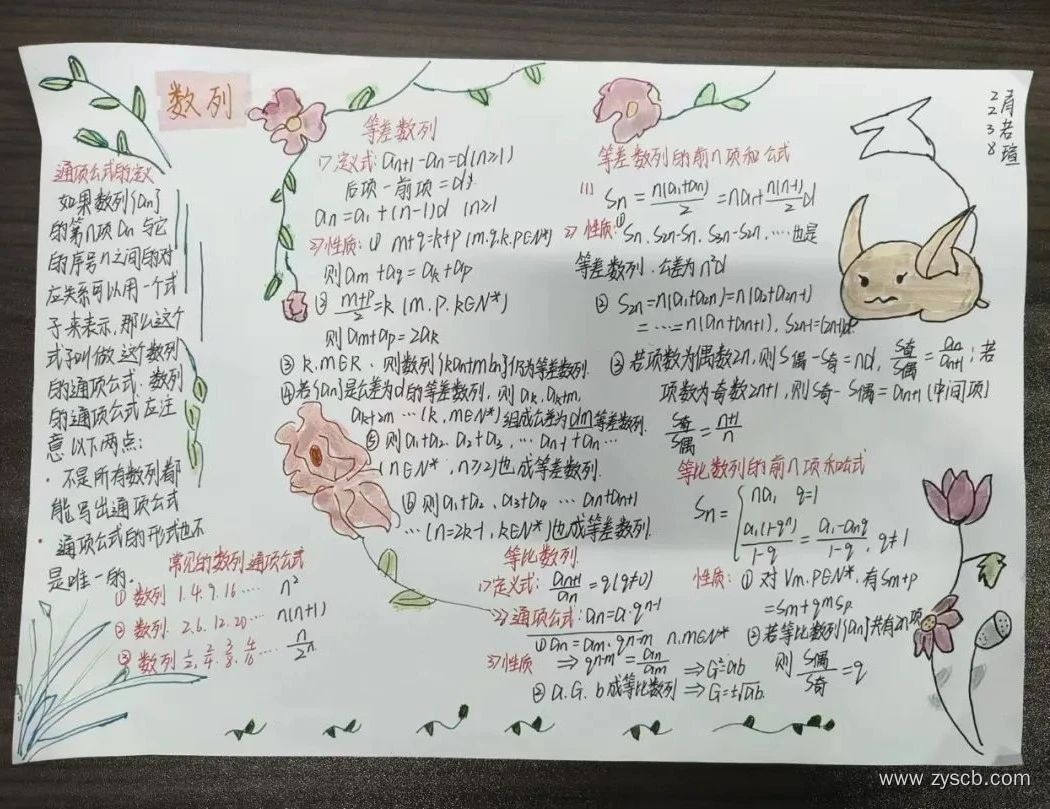 数列
通项公式的定义
如果数列{an}
的第n项an与它
的序号n之间的对
应关系可以用一个式
子来表示,那么这个
式子叫做这个数列
的通项公式.数列
的通项公式应注
意以下两点:
·不是所有数列都
能写出通项公式
·通项公式的形式也不
是唯一的.
常见的数列通项公式
① 数列 1.4.9.16…… n²
② 数列. 2.6.12.20… n(n+1)
③ 数列 1/2. 2/4. 3/8. 4/16… n/2n
等差数列
1> 定义式: an+1-an=d(n≥1)
后项-前项=d
an=a1+(n-1)d (n≥1
2> 性质: ① m+q=k+p (m.q.k.p∈N*)
则am+aq=ak+ap
② m+p/2=k (m.p.k∈N*)
则am+ap=2ak
③ k.m∈R,则数列{kan+mbn}仍为等差数列.
④ 若{an}是公差为d的等差数列,则ak,ak+m,
ak+2m…(k,m∈N*)组成公差为dm等差数列.
⑤ 则a1+a2.a2+a3,…an-1+an…
(n∈N*,n≥2)也成等差数列.
⑥ 则a1+a2,a3+a4…an+an+1
…(n=2k-1,k∈N*)也成等差数列.
等比数列
1> 定义式: an+1/an=q(q≠0)
2> 通项公式: an=a·qn-1
① an=am·qn-m n.m∈N*
3> 性质 ⇒ qn-m=an/am ⇒G²=ab
② a.G.b成等比数列⇒G=±√ab.
等差数列的前n项和公式
(1) Sn=n(a1+an)/2=na1+n(n-1)/2d
2> 性质:① Sn、S2n-Sn、S3n-S2n,…也是
等差数列,公差为n²d
② S2n=n(a1+a2n)=n(a2+a2n-1)
=……=n(an+an+1),S2n-1=
③ 若项数为偶数2n,则S偶-S奇=nd,S奇/S偶=an/an+1;若
项数为奇数2n+1,则S奇-S偶=an+1(中间项)
S奇/S偶=n+1/n
等比数列的前n项和公式
Sn={na1 q=1
a1(1-qn)/1-q=a1-anq/1-q,q≠1
性质: ① 对∀m.p∈N*,有Sm+p
=Sm+qmSp
② 若等比数列{an}共有2n项
则S偶/S奇=q
2238
若瑄
www.zyscb.com